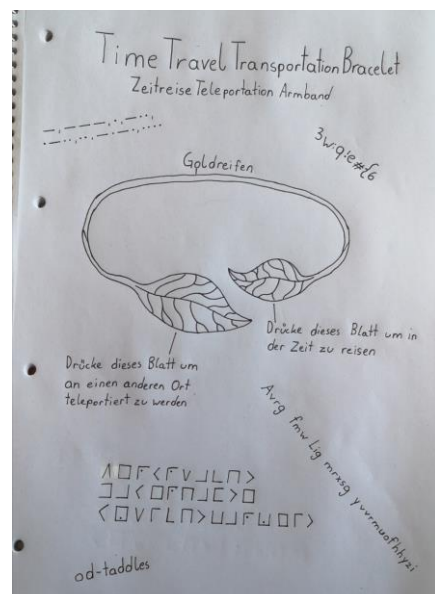 Time Travel Transportation Bracelet
Zeitreise Teleportation Armband
3w:q:e#{6
Goldreifen
Drücke dieses Blatt um in
der Zeit zu reisen
Drücke dieses Blatt um
an einen anderen Ort
teleportiert zu werden
Avrg fmw Lig mrxsg yuvrmuofhhyzi
od-taddles